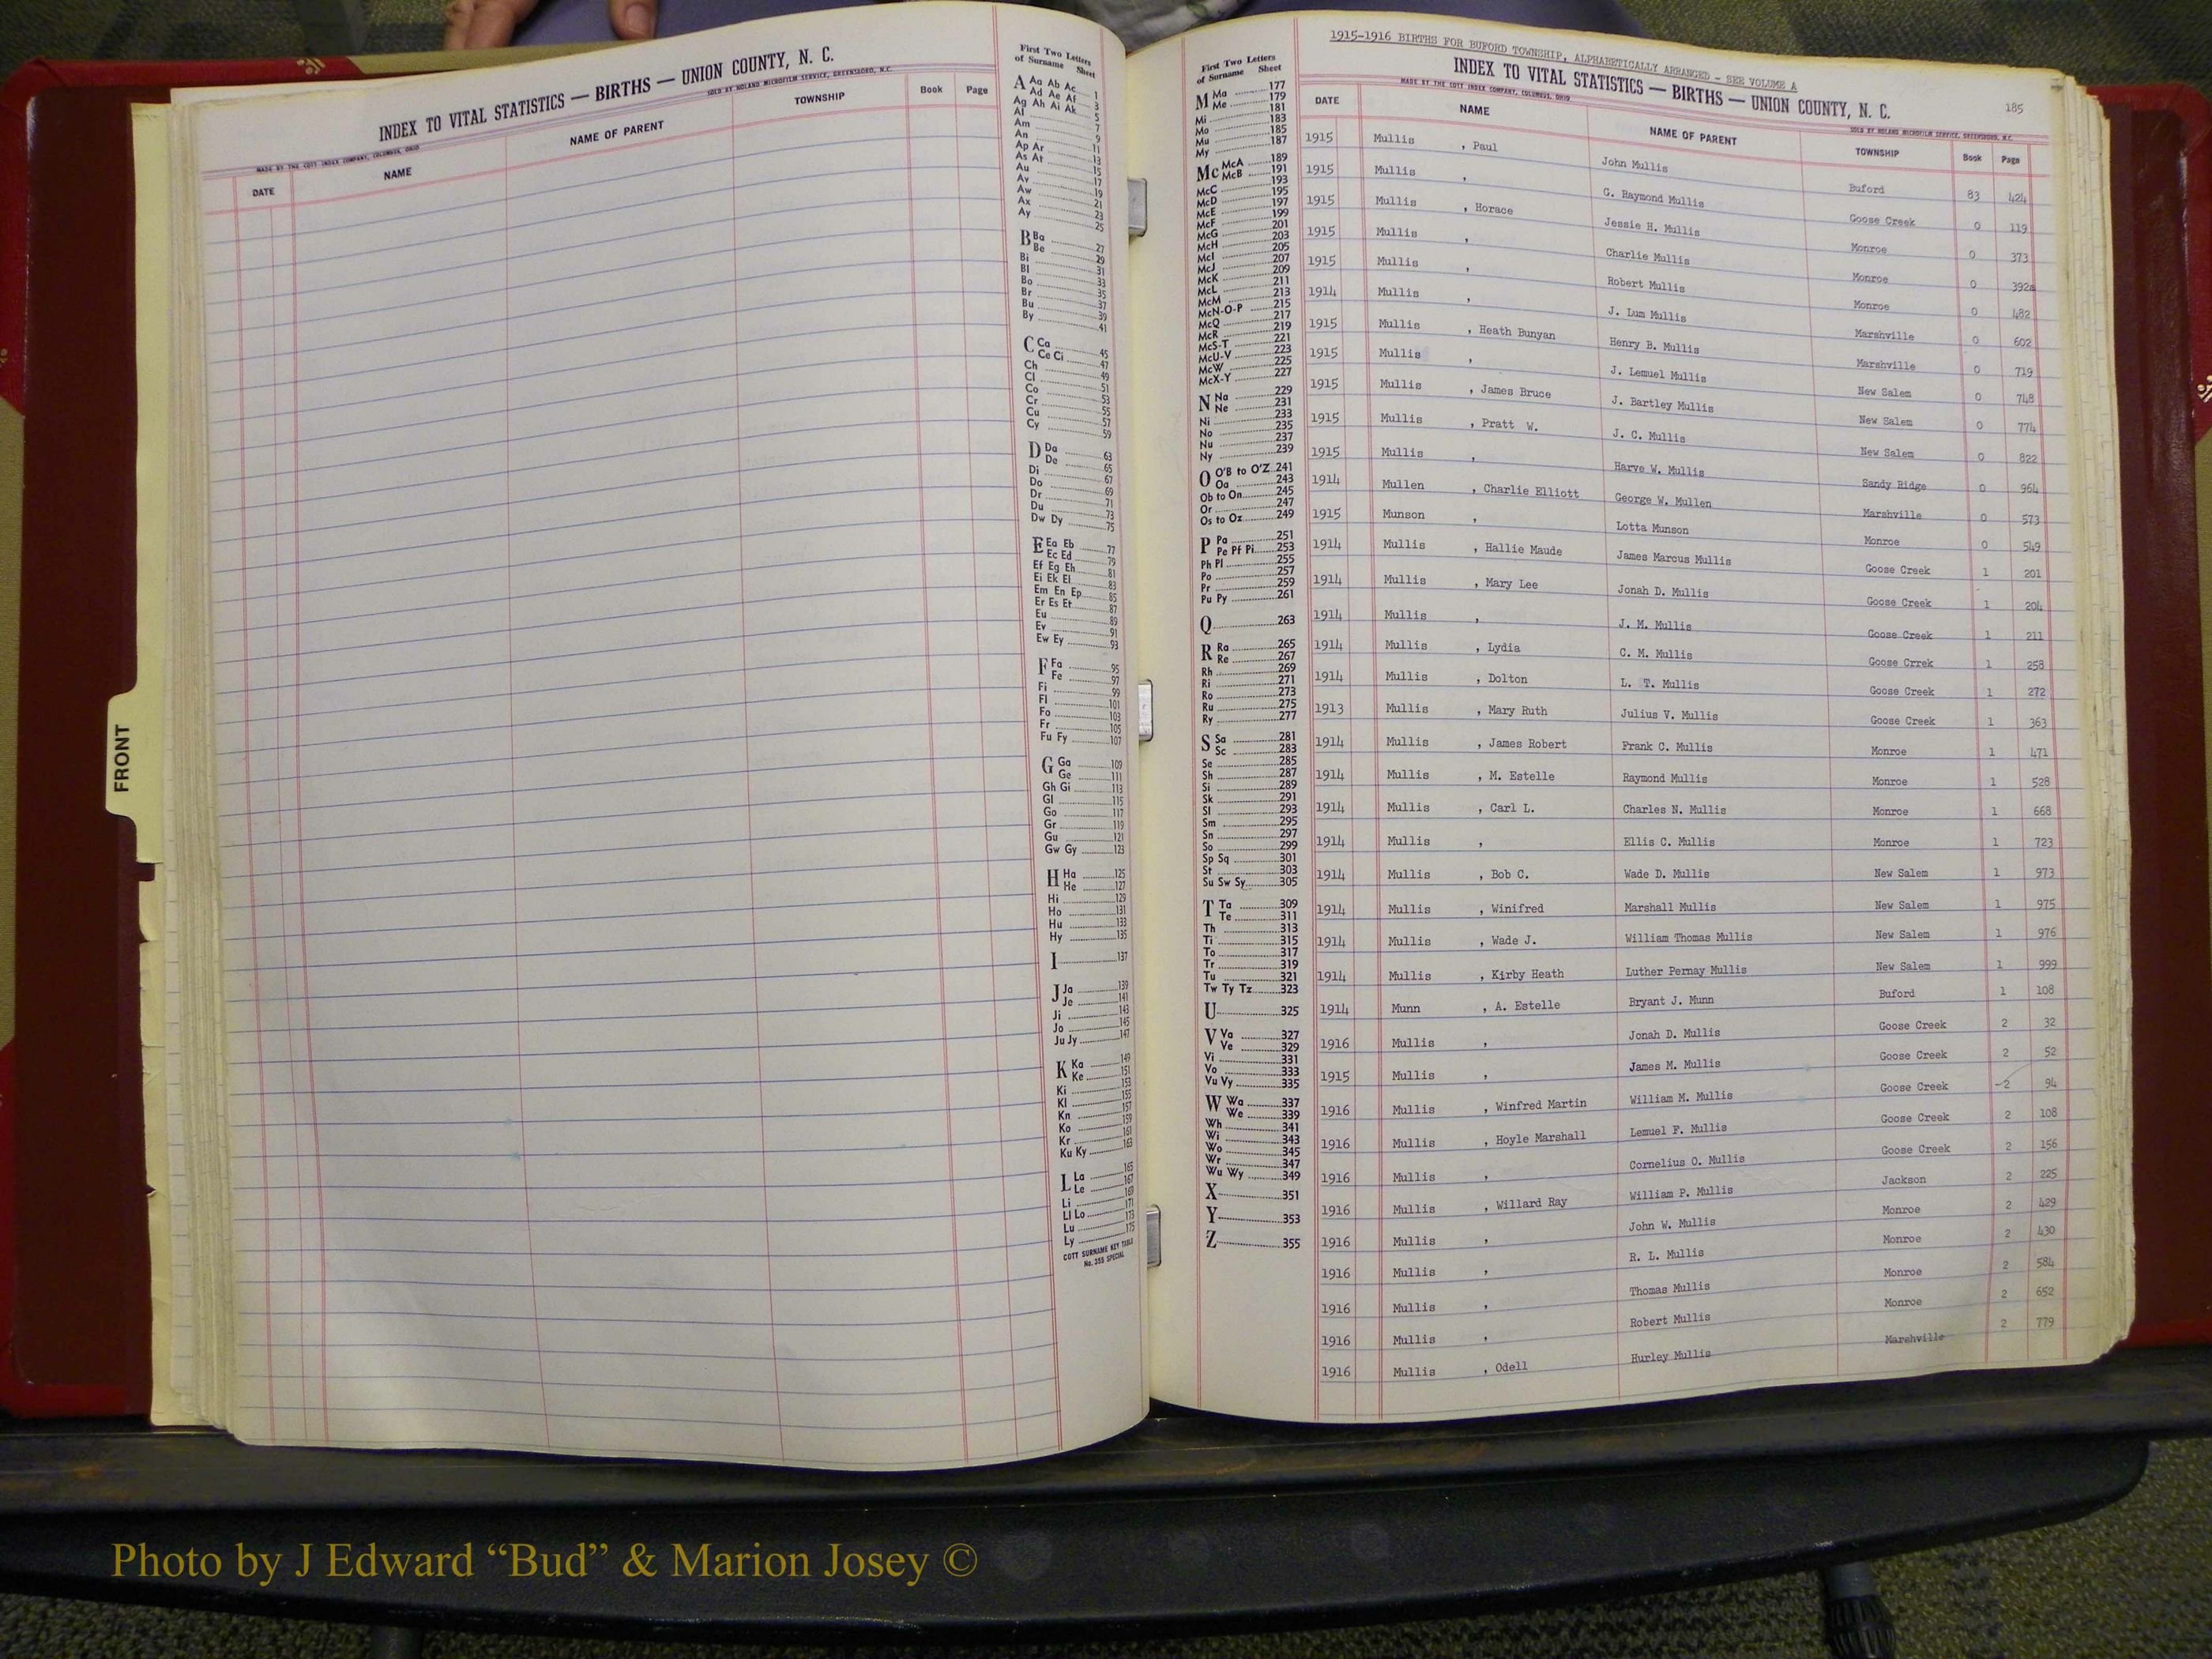 INDEX TO VITAL STATISTICS — BIRTHS — UNION COUNTY, N. C.
MADE BY THE COTT INDEX COMPANY, COLUMBUS, OHIO SOLD BY NOLAND MICROFILM SERVICE, GREENSBORO, N.C.
DATE NAME NAME OF PARENT TOWNSHIP Book Page
First Two Letters
of Surname Sheet
A Aa Ab Ac 1
Ad Ae Af 3
Ag Ah Ai Ak 5
Al 7
Am 9
An 11
Ap Ar 13
As At 15
Au 17
Av 19
Aw 21
Ax 23
Ay 25
B Ba 27
Be 29
Bi 31
Bl 33
Bo 35
Br 37
Bu 39
By 41
C Ca 45
Ce Ci 47
Ch 49
Cl 51
Co 53
Cr 55
Cu 57
Cy 59
D Da 63
De 65
Di 67
Do 69
Dr 71
Du 73
Dw Dy 75
E Ea Eb 77
Ec Ed 79
Ef Eg Eh 81
Ei Ek El 83
Em En Ep 85
Er Es Et 87
Eu 89
Ev 91
Ew Ey 93
F Fa 95
Fe 97
Fi 99
Fl 101
Fo 103
Fr 105
Fu Fy 107
G Ga 109
Ge 111
Gh Gi 113
Gl 115
Go 117
Gr 119
Gu 121
Gw Gy 123
H Ha 125
He 127
Hi 129
Ho 131
Hu 133
Hy 135
I 137
J Ja 139
Je 141
Ji 143
Jo 145
Ju Jy 147
K Ka 149
Ke 151
Ki 153
Kl 155
Kn 157
Ko 159
Kr 161
Ku Ky 163
L La 165
Le 167
Li 169
Ll Lo 171
Lu 173
Ly 175
COTT SURNAME KEY TABLE
No. 355 SPECIAL
FRONT
First Two Letters
of Surname Sheet
M Ma 177
Me 179
Mi 181
Mo 183
Mu 185
My 187
Mc McA 189
McB 191
McC 193
McD 195
McE 197
McF 199
McG 201
McH 203
McI 205
McJ 207
McK 209
McL 211
McM 213
McN-O-P 215
McQ 217
McR 219
McS-T 221
McU-V 223
McW 225
McX-Y 227
N Na 229
Ne 231
Ni 233
No 235
Nu 237
Ny 239
O O'B to O'Z 241
Oa 243
Ob to On 245
Or 247
Os to Oz 249
P Pa 251
Pe Pf Pi 253
Ph Pl 255
Po 257
Pr 259
Pu Py 261
Q 263
R Ra 265
Re 267
Rh 269
Ri 271
Ro 273
Ru 275
Ry 277
S Sa 281
Sc 283
Se 285
Sh 287
Si 289
Sk 291
Sl 293
Sm 295
Sn 297
So 299
Sp Sq 301
St 303
Su Sw Sy 305
T Ta 309
Te 311
Th 313
Ti 315
To 317
Tr 319
Tu 321
Tw Ty Tz 323
U 325
V Va 327
Ve 329
Vi 331
Vo 333
Vu Vy 335
W Wa 337
We 339
Wh 341
Wi 343
Wo 345
Wr 347
Wu Wy 349
X 351
Y 353
Z 355
1915-1916 BIRTHS FOR BUFORD TOWNSHIP, ALPHABETICALLY ARRANGED - SEE VOLUME A
INDEX TO VITAL STATISTICS — BIRTHS — UNION COUNTY, N. C. 185
MADE BY THE COTT INDEX COMPANY, COLUMBUS, OHIO SOLD BY NOLAND MICROFILM SERVICE, GREENSBORO, N.C.
DATE NAME NAME OF PARENT TOWNSHIP Book Page
1915 Mullis , Paul John Mullis Buford 83 424
1915 Mullis , G. Raymond Mullis Goose Creek 0 119
1915 Mullis , Horace Jessie H. Mullis Monroe 0 373
1915 Mullis , Charlie Mullis Monroe 0 392a
1915 Mullis , Robert Mullis Monroe 0 482
1914 Mullis , J. Lum Mullis Marshville 0 602
1915 Mullis , Heath Bunyan Henry B. Mullis Marshville 0 719
1915 Mullis , J. Lemuel Mullis New Salem 0 748
1915 Mullis , James Bruce J. Bartley Mullis New Salem 0 774
1915 Mullis , Pratt W. J. C. Mullis New Salem 0 822
1915 Mullis , Harve W. Mullis Sandy Ridge 0 964
1914 Mullen , Charlie Elliott George W. Mullen Marshville 0 573
1915 Munson , Lotta Munson Monroe 0 549
1914 Mullis , Hallie Maude James Marcus Mullis Goose Creek 1 201
1914 Mullis , Mary Lee Jonah D. Mullis Goose Creek 1 204
1914 Mullis , J. M. Mullis Goose Creek 1 211
1914 Mullis , Lydia C. M. Mullis Goose Crrek 1 258
1914 Mullis , Dolton L. T. Mullis Goose Creek 1 272
1913 Mullis , Mary Ruth Julius V. Mullis Goose Creek 1 363
1914 Mullis , James Robert Frank C. Mullis Monroe 1 471
1914 Mullis , M. Estelle Raymond Mullis Monroe 1 528
1914 Mullis , Carl L. Charles N. Mullis Monroe 1 668
1914 Mullis , Ellis C. Mullis Monroe 1 723
1914 Mullis , Bob C. Wade D. Mullis New Salem 1 973
1914 Mullis , Winifred Marshall Mullis New Salem 1 975
1914 Mullis , Wade J. William Thomas Mullis New Salem 1 976
1914 Mullis , Kirby Heath Luther Pernay Mullis New Salem 1 999
1914 Munn , A. Estelle Bryant J. Munn Buford 1 108
1916 Mullis , Jonah D. Mullis Goose Creek 2 32
1915 Mullis , James M. Mullis Goose Creek 2 52
1916 Mullis , Winfred Martin William M. Mullis Goose Creek 2 94
1916 Mullis , Hoyle Marshall Lemuel F. Mullis Goose Creek 2 108
1916 Mullis , Cornelius O. Mullis Goose Creek 2 156
1916 Mullis , Willard Ray William P. Mullis Jackson 2 225
1916 Mullis , John W. Mullis Monroe 2 429
1916 Mullis , R. L. Mullis Monroe 2 430
1916 Mullis , Thomas Mullis Monroe 2 584
1916 Mullis , Robert Mullis Monroe 2 652
1916 Mullis , Odell Hurley Mullis Marshville 2 779
Photo by J Edward “Bud” & Marion Josey ©